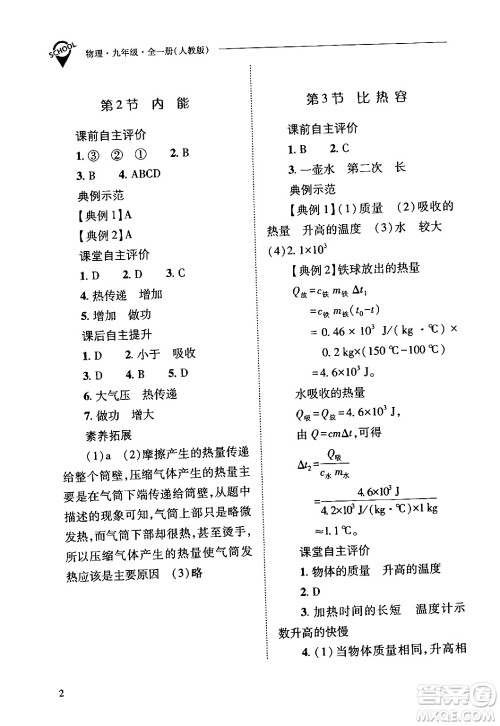 SCHOOL
物理·九年级·全一册(人教版)
第2节 内 能
课前自主评价
1. ③ ② ① 2. B
3. B 4. ABCD
典例示范
【典例1】A
【典例2】A
课堂自主评价
1. D 2. D 3. D
4. 热传递 增加
5. 增加 做功
课后自主提升
1. D 2. 小于 吸收
3. B 4. D 5. D
6. 大气压 热传递
7. 做功 增大
素养拓展
(1)a (2)摩擦产生的热量传递
给整个筒壁,压缩气体产生的热量主
要是在气筒下端传递给筒壁,从题中
描述的现象可知,气筒上部只是微微
发热,而气筒下部,甚至烫手,
所以压缩气体产生的热量使气筒发
热应该是主要原因 (3)略
第3节 比 热 容
课前自主评价
1. B 2. C
3. 一壶水 第二次 长
典例示范
【典例1】(1)质量 (2)吸收的
热量 升高的温度 (3)水 较大
(4)2.1×10³
【典例2】铁球放出的热量
Q放=c铁 m铁 Δt₁
=c铁 m铁(t₀-t)
=0.46×10³ J/(kg·℃)×
0.2 kg×(150 ℃-100 ℃)
=4.6×10³ J。
水吸收的热量
Q吸=Q放=4.6×10³ J。
由 Q=cmΔt 可得
Δt₂=Q吸/c水 m水
=4.6×10³ J/4.2×10³ J/(kg·℃)×1 kg
≈1.1℃。
课堂自主评价
1. 物体的质量 升高的温度
2. D
3. 加热时间的长短 温度计示
数升高的快慢
4. (1)当物体质量相同,升高相
2